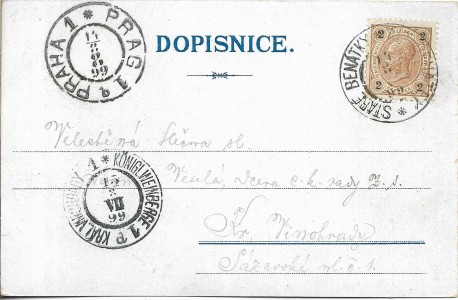 PRAHA 1 * PRAG 1
14
8
99
DOPISNICE.
2 2
STARÉ BENÁTKY
Velectěná Slečna sl.
KRÁL. VINOHRADY 1 * KÖNIGL. WEINBERGE 1
15
VII
99
Veselá, dcera c. k. rady z. s.
Kr. Vinohrady
Sázavská ul. č. 1.